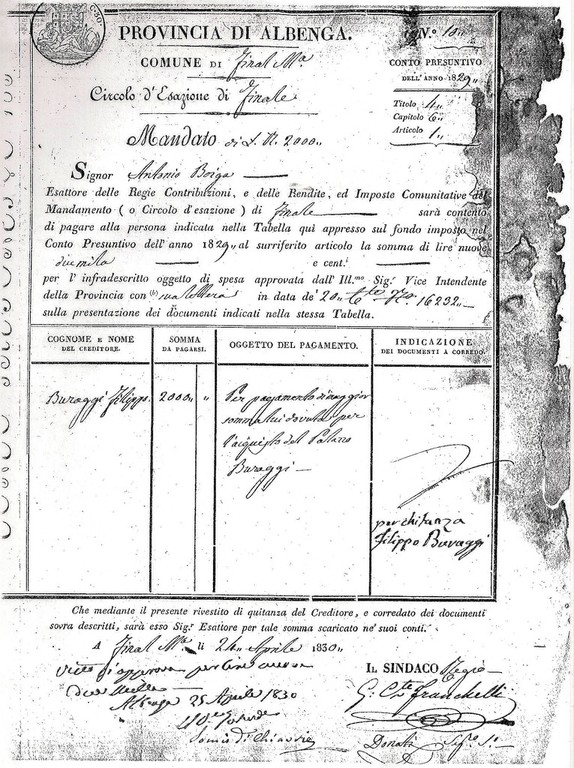 PROVINCIA DI ALBENGA.
N.° 10
COMUNE DI Final M.ª
CONTO PRESUNTIVO
DELL'ANNO 1829
Circolo d'Esazione di Finale
Titolo 4
Capitolo 6
Articolo 1
Mandato di L. N. 2000
Signor Antonio Boiga
Esattore delle Regie Contribuzioni, e delle Rendite, ed Imposte Comunitative del
Mandamento ( o Circolo d'esazione ) di Finale sarà contento
di pagare alla persona indicata nella Tabella quì appresso sul fondo imposto nel
Conto Presuntivo dell'anno 1829 al surriferito articolo la somma di lire nuove
due mila e cent.i
per l'infradescritto oggetto di spesa approvata dall'Ill.mo Sig.r Vice Intendente
della Provincia con sua lettera in data de' 20 N.° 16232
sulla presentazione dei documenti indicati nella stessa Tabella.
COGNOME E NOME
DEL CREDITORE.
SOMMA
DA PAGARSI.
OGGETTO DEL PAGAMENTO.
INDICAZIONE
DEI DOCUMENTI A CORREDO.
Buraggi Filippo
2000
Per pagamento di maggior
somma lui dovuta per
l'acquisto del Palazzo
Buraggi
per chitanza
Filippo Buraggi
Che mediante il presente rivestito di quitanza del Creditore, e corredato dei documenti
sovra descritti, sarà esso Sig.r Esattore per tale somma scaricato ne' suoi conti.
A Final M.ª li 24 Aprile 1830
IL SINDACO Regio
G. C.te Franchelli
due mille
Albenga 25 Aprile 1830
Donati Seg.o